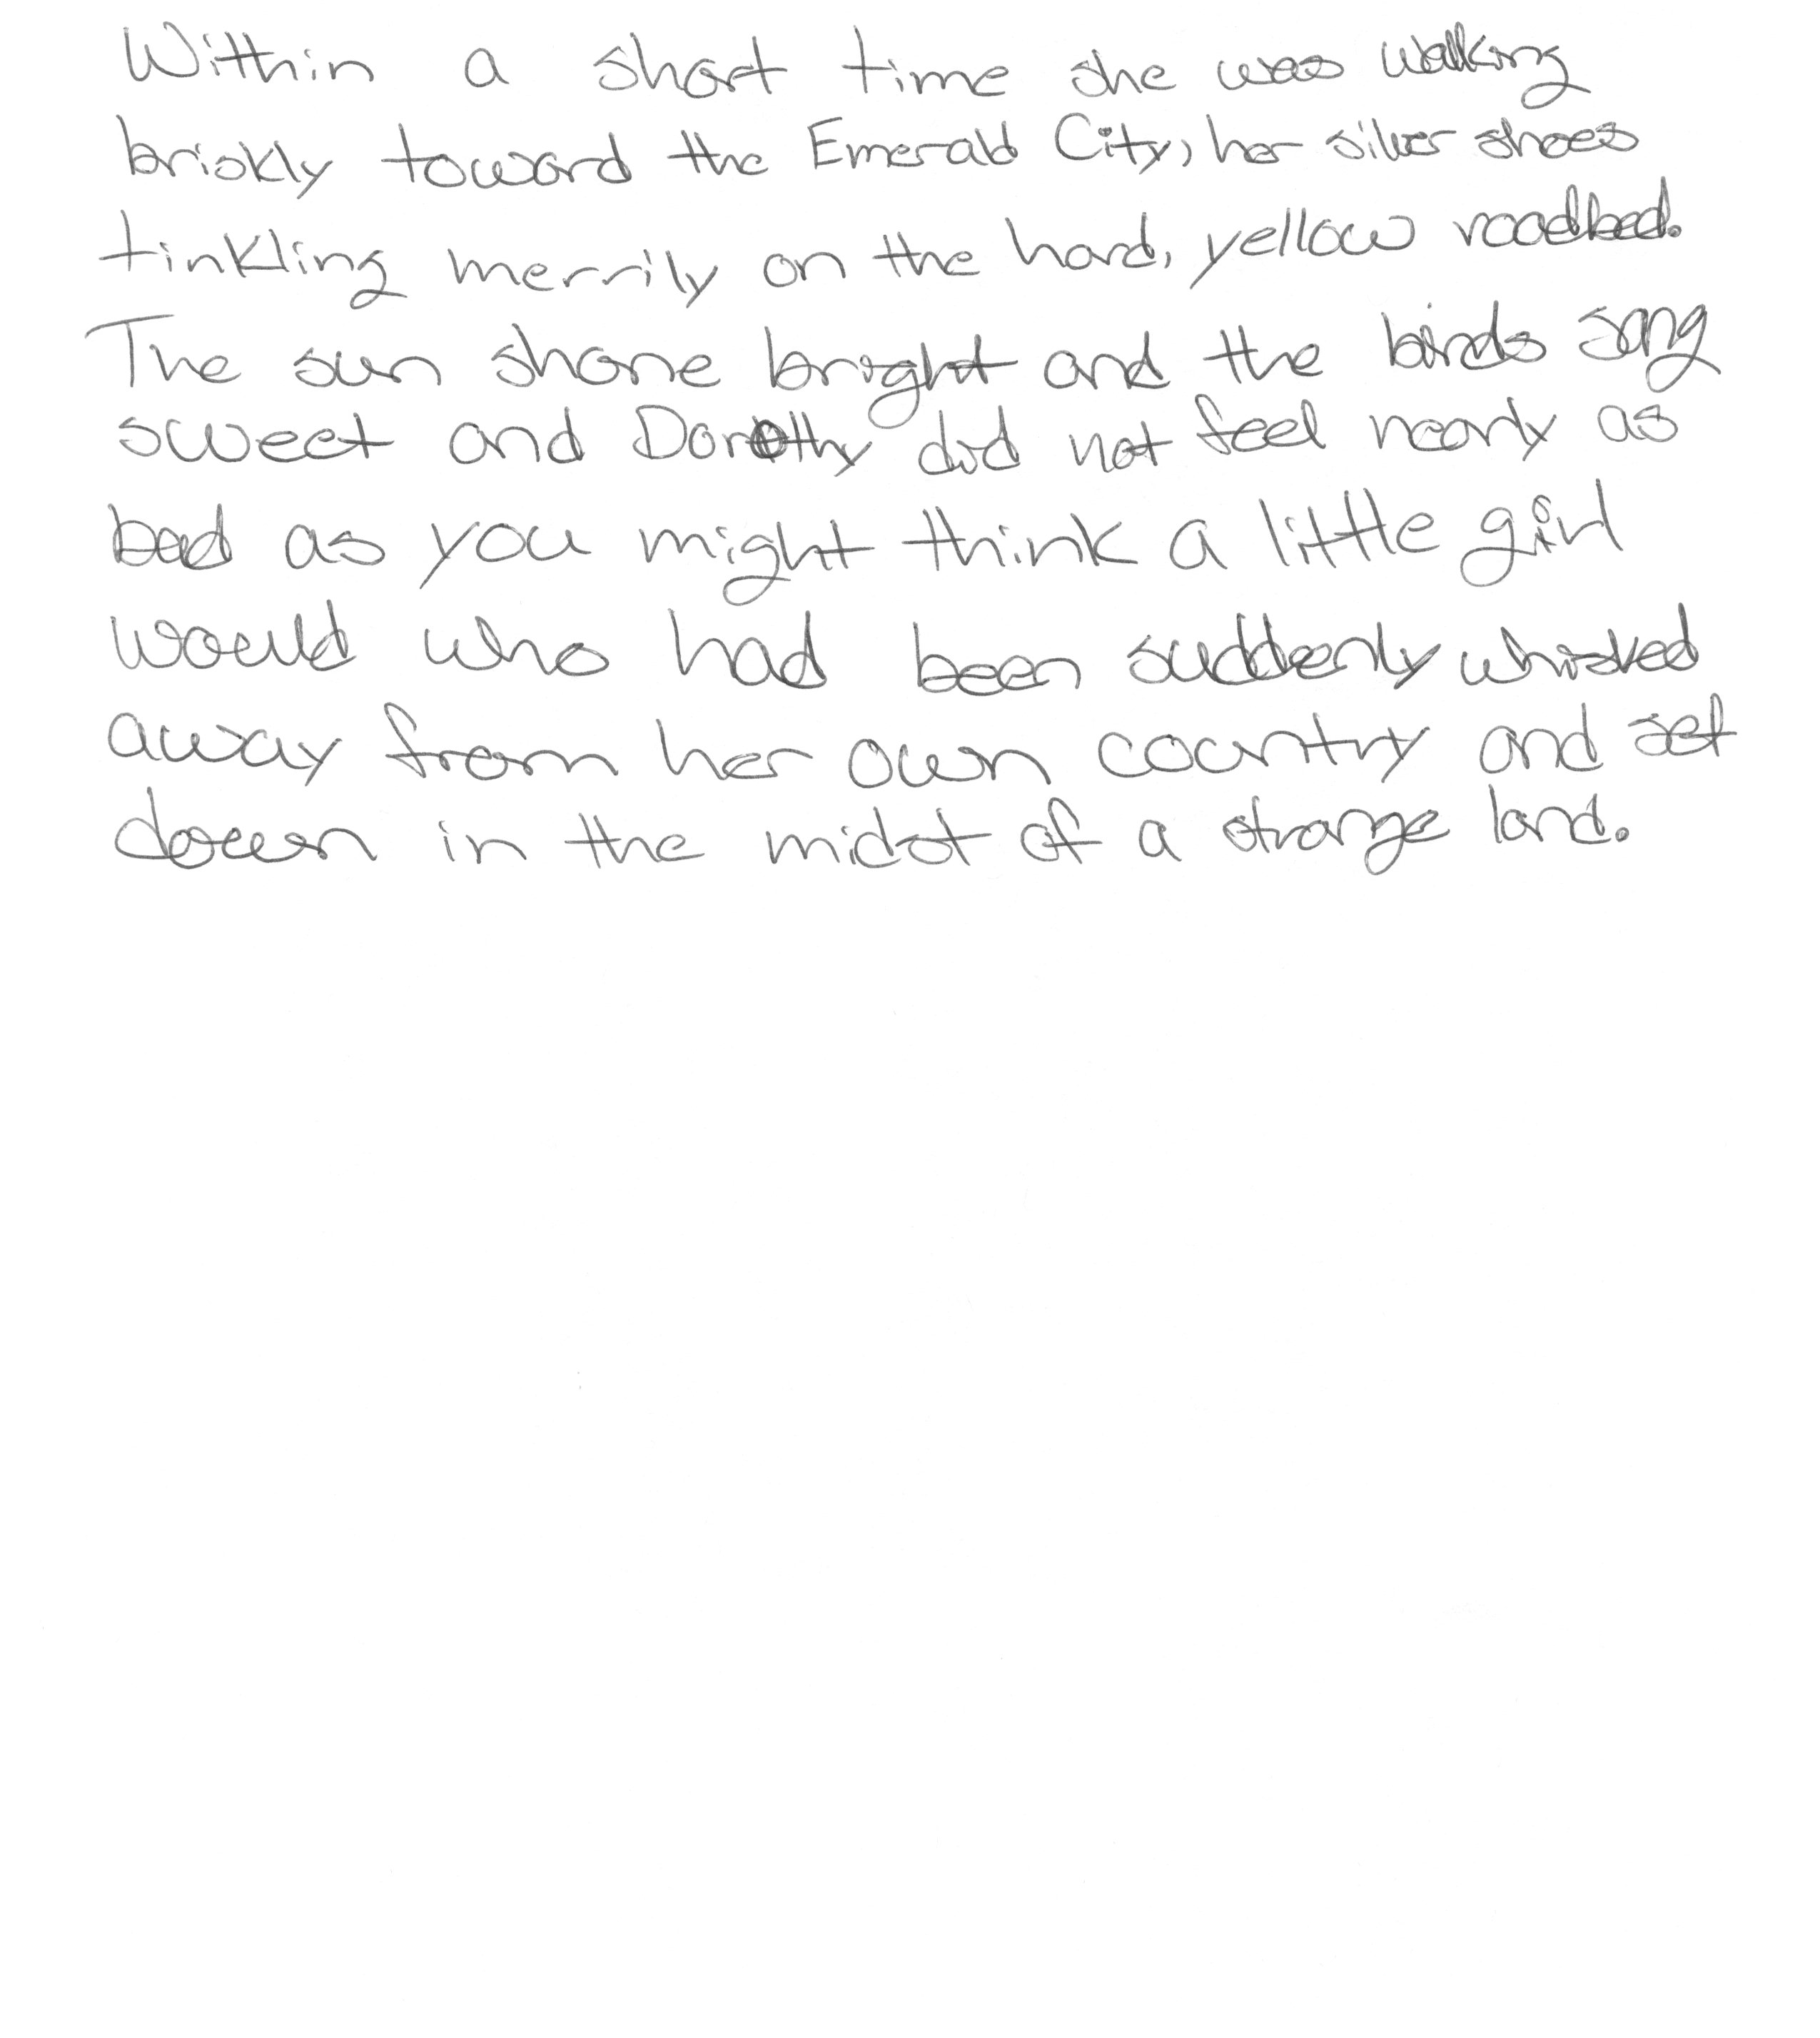 Within a short time she was walking
briskly toward the Emerald City, her silver shoes
tinkling merrily on the hard, yellow roadbed.
The sun shone bright and the birds sang
sweet and Dorothy did not feel nearly as
bad as you might think a little girl
would who had been suddenly whisked
away from her own country and set
down in the midst of a strange land.